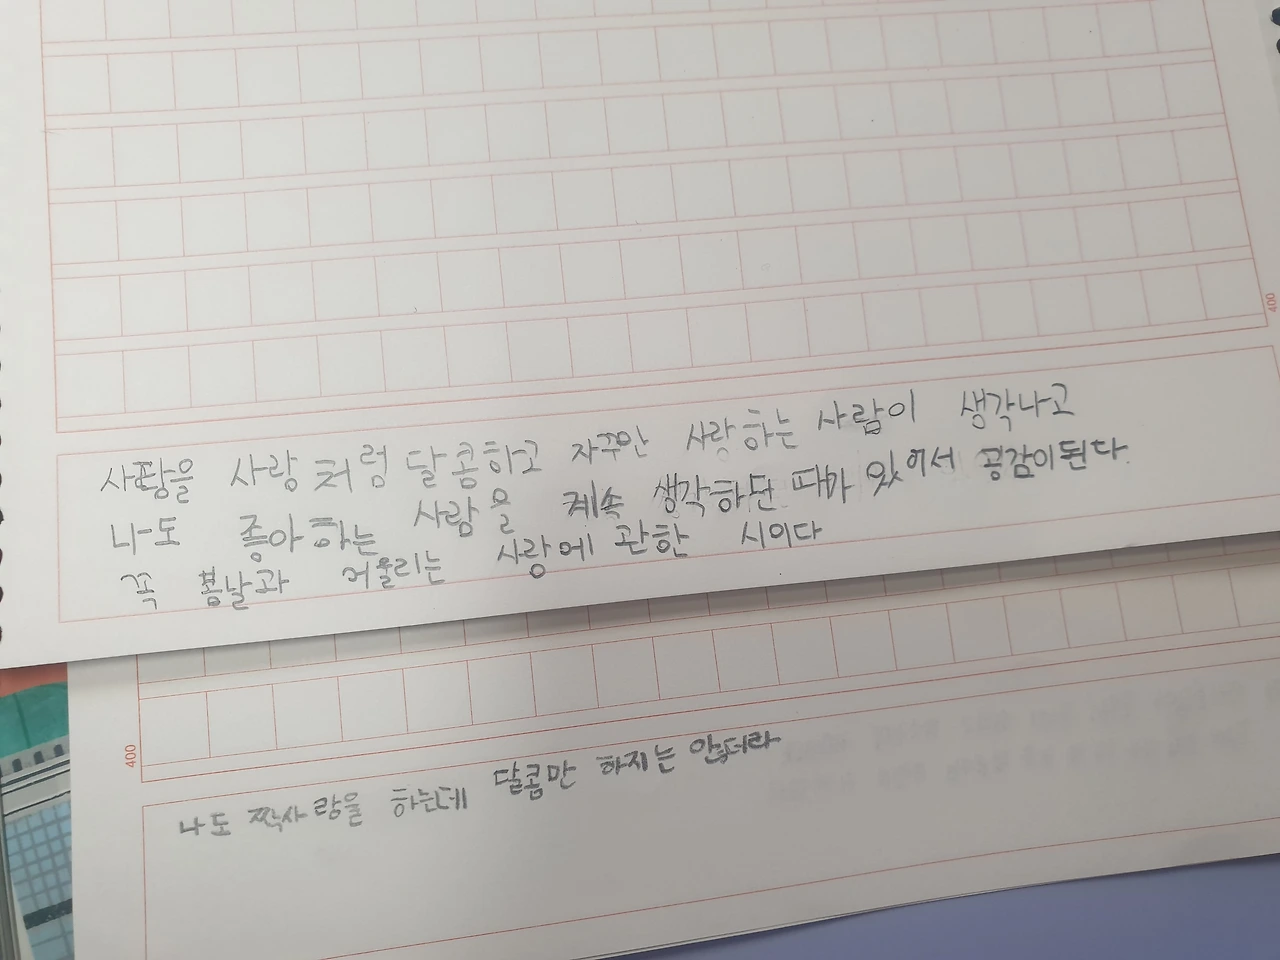 사랑을 사랑 처럼 달콤하고 자꾸만 사랑하는 사람이 생각나고
나도 좋아하는 사람을 계속 생각하던 때가 있어서 공감이된다.
꼭 봄날과 어울리는 사랑에 관한 시이다
400
400
나도 짝사랑을 하는데 달콤만 하지는 않더라